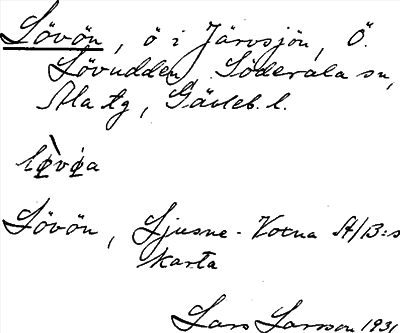 Lövön, ö i Järvsjön, Ö.
Lövudden, Söderala sn,
Ala tg, Gävleb. l.
Lövön, Ljusne-Voxna A/B:s
karta
Lars Larsson 1931